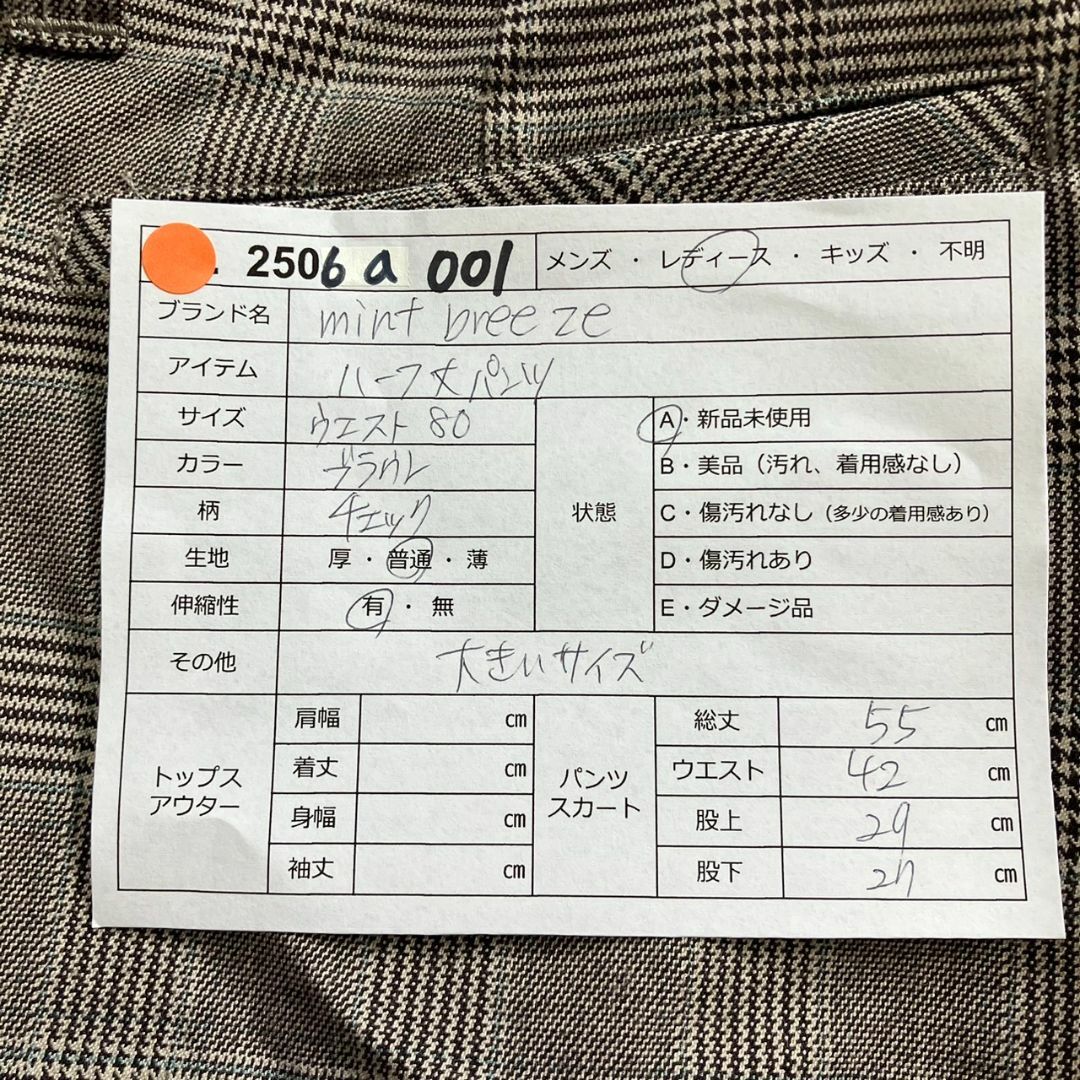 . 2506 a 001 メンズ ・ レディース ・ キッズ ・ 不明
ブランド名 mint breeze
アイテム ハーフ丈パンツ
サイズ ウエスト 80
カラー ブラウン
柄 チェック
生地 厚 ・ 普通 ・ 薄
伸縮性 有 ・ 無
状態
A・新品未使用
B・美品（汚れ、着用感なし）
C・傷汚れなし（多少の着用感あり）
D・傷汚れあり
E・ダメージ品
その他 大きいサイズ
トップス
アウター
肩幅 ㎝
着丈 ㎝
身幅 ㎝
袖丈 ㎝
パンツ
スカート
総丈 55 ㎝
ウエスト 42 ㎝
股上 29 ㎝
股下 27 ㎝